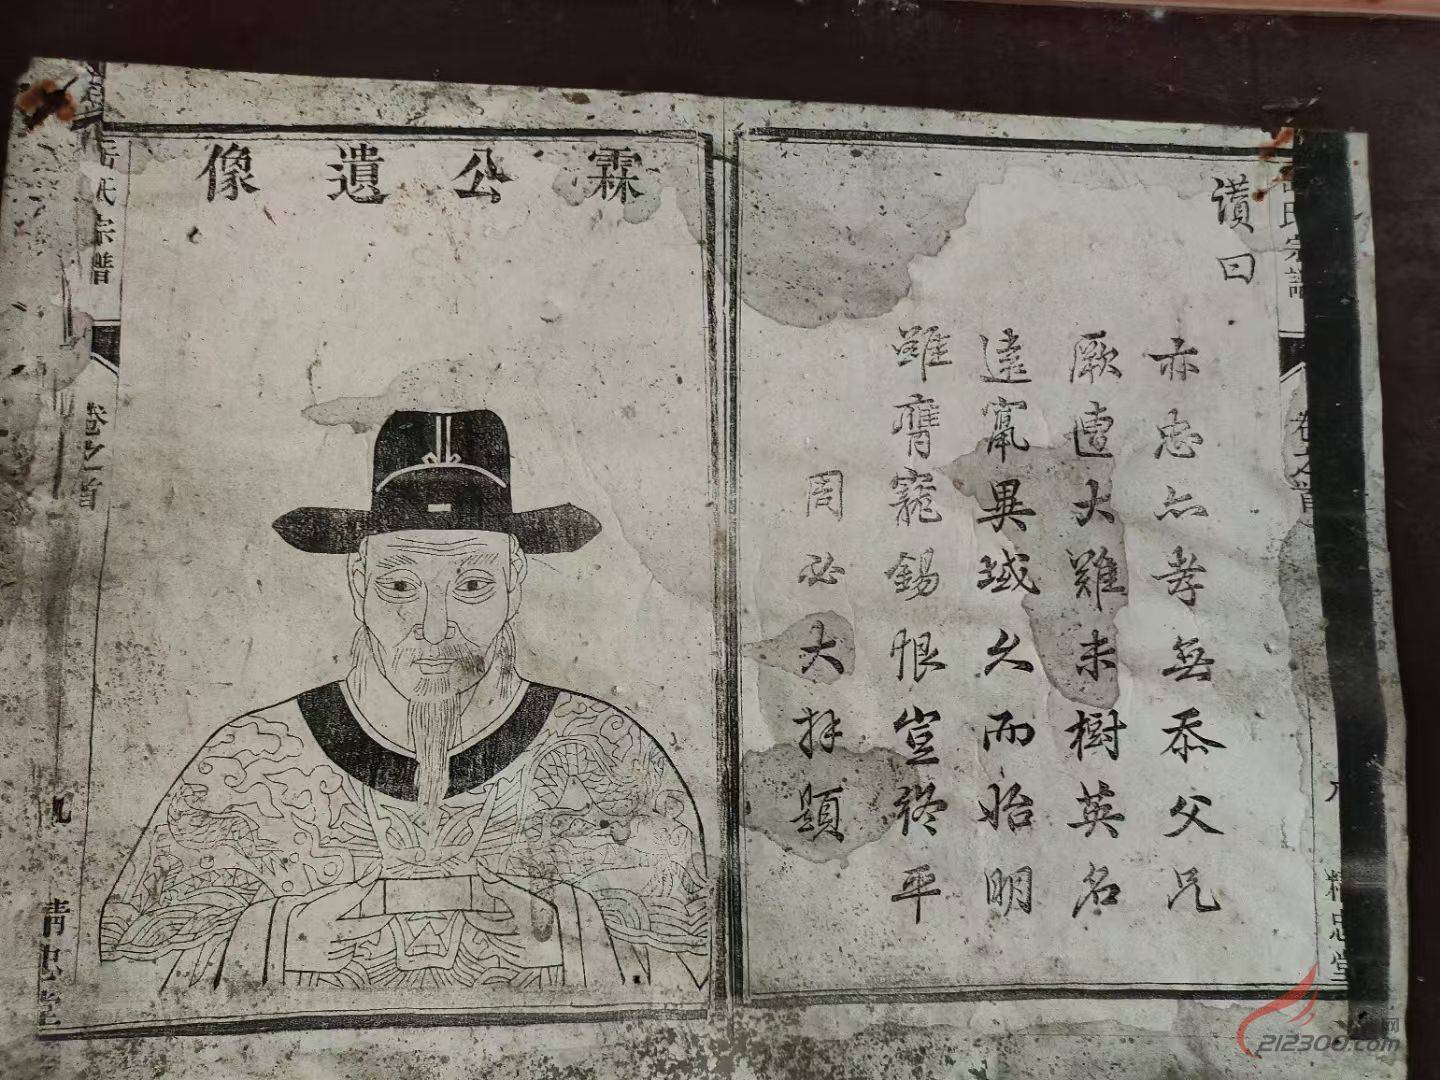 氏宗譜
卷之首
精忠堂
讃曰
亦忠亦孝無忝父兄
厥遭大難未樹英名
遠竄異域久而始明
雖膺寵錫恨豈終平
周必大拜題
霖公遺像
岳氏宗譜
卷之首
九
精忠堂
212300.com